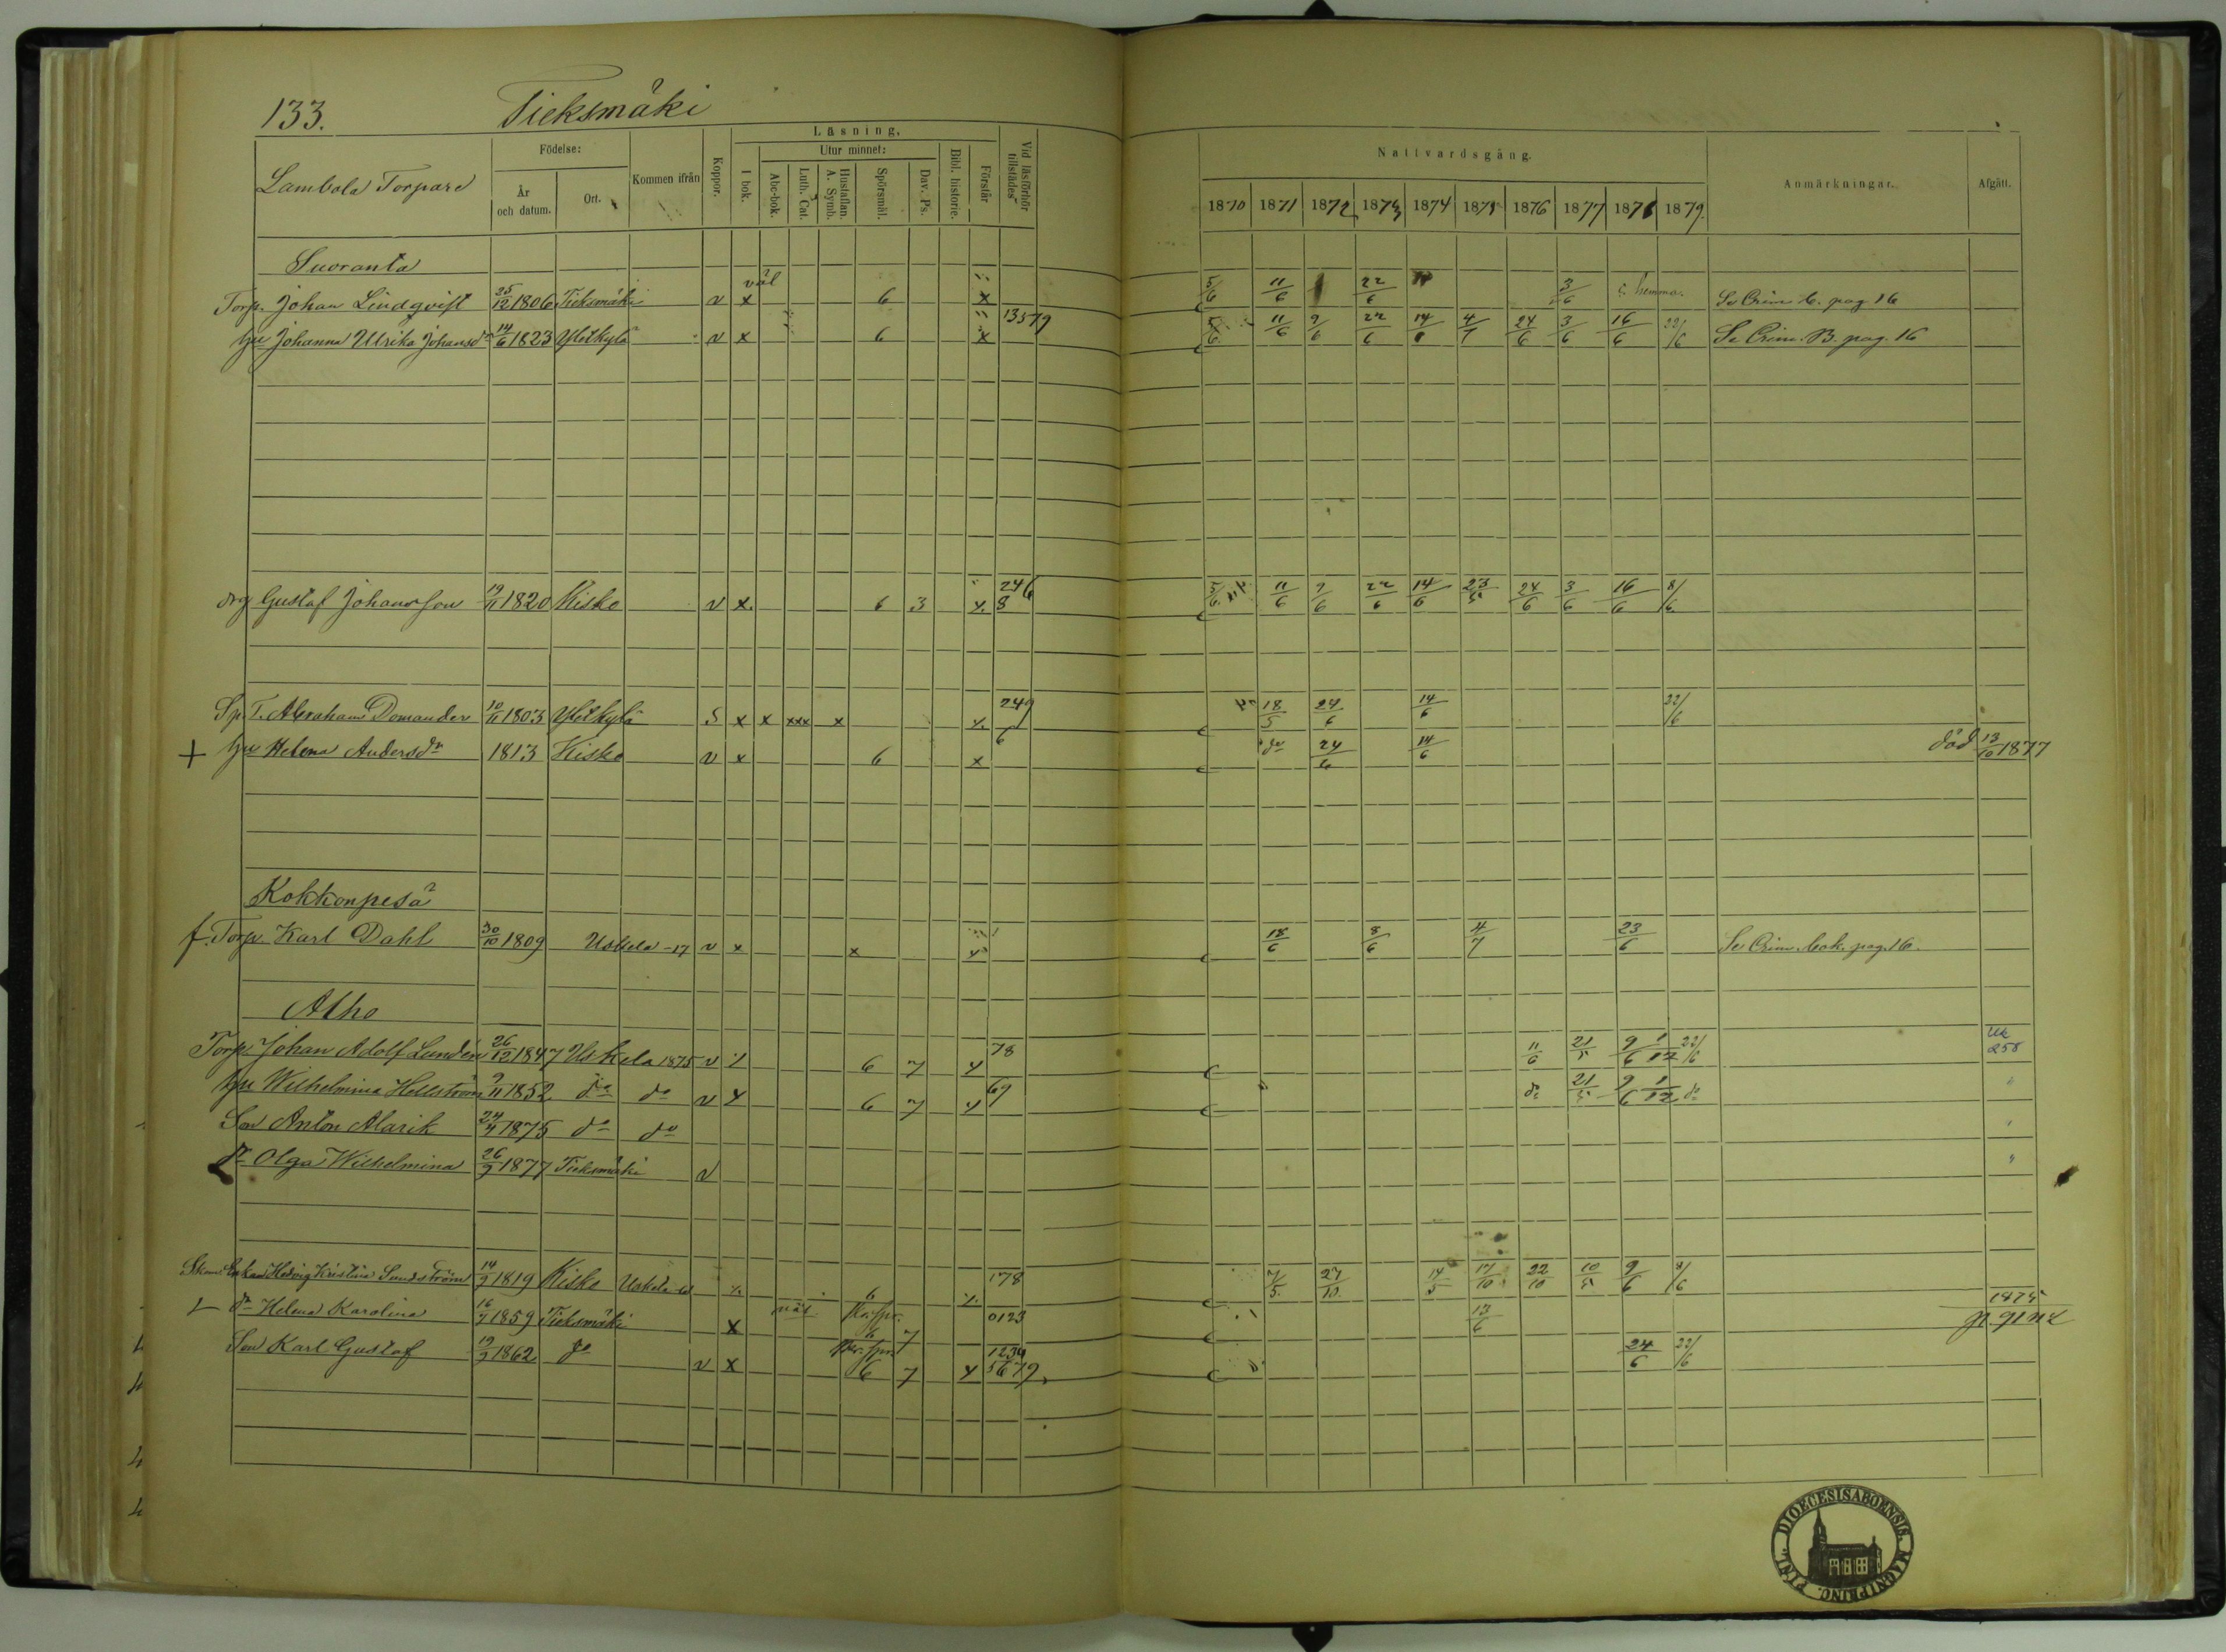 133. Tieksmäki
Lambola Torpare
Födelse:
År och datum.
Ort.
Kommen ifrån
Koppor.
Läsning.
I bok.
Utur minnet:
Abc-bok.
Luth. Cat.
Hustaflan. A. Symb.
Spörsmål.
Dav. Ps.
Bibl. historie.
Förstår
Vid läsförhör tillstädes
Nattvardsgång.
1870 1871 1872 1873 1874 1875 1876 1877 1878 1879.
Anmärkningar.
Afgått.
Suoranta
Torp. Johan Lindqvist 25/12 1806 Tieksmäki v x väl 6 x 5/6 11/6 22/6 3/6 hemma. Se Crim. b. pag 16
hu Johanna Ulrika Johansdr 14/6 1823 v x 6 x 13579 5/6 11/6 9/6 22/6 14/6 4/7 24/6 3/6 16/6 22/6 Se Crim. B. pag. 16
drg Gustaf Johansson 19/11 1820 Kisko v x 6 3 x. 246 8 5/6 11/6 9/6 22/6 14/6 23/5 24/6 3/6 16/6 8/6
Sp. T. Abraham Domander 10/11 1803 S x x xxx x 249 18/5 24/6 14/6 22/6
+ hu Helena Andersdr 1813 Kisko v x 6 x 6 do 24/6 14/6 död 13/10 1877
Kokkonpesä
f. Torp. Karl Dahl 30/10 1809 Uskela -17 v x x 18/6 8/6 4/7 23/6 Se Crim. bok. pag. 16.
Alho
Torp. Johan Adolf Lundén 26/12 1847 Uskela 1875 v 6 7 78 11/6 21/5 9/6 1/12 22/6 258
hu Wilhelmina Hellström 9/11 1852 do do v 6 7 69 do 21/5 9/6 1/12 do "
Son Anton Alarik 24/4 1875 do do "
dr Olga Wilhelmina 26/9 1877 Tieksmäki v "
Enkan Hedvig Kristina Sundström 14/9 1819 Kisko Uskela 6 178 7/5 27/10 14/5 17/10 22/10 10/5 9/6 8/6
dr Helena Karolina 16/7 1859 Tieksmäki x näl 6 7 0123 13/6 1875
Son Karl Gustaf 19/9 1862 do v x 6 7 1234 5679 24/6 22/6
DIOECESIS ABOENSIS. MAGNI PRINC. FINL.